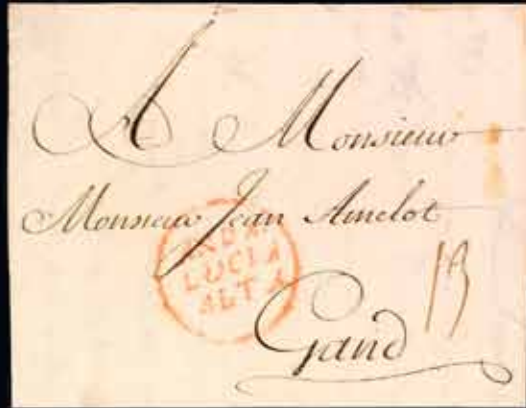 A Monsieur
Monsieur Jean Amelot
ANDA
LUCIA
ALTA
13
Gand